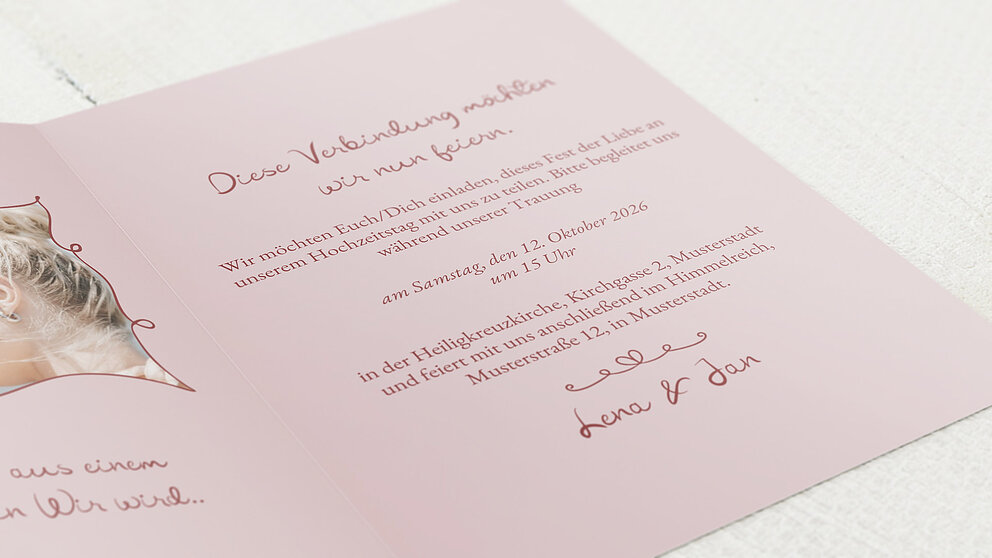 aus einem
Wir wird..
Diese Verbindung möchten
wir nun feiern.
Wir möchten Euch/Dich einladen, dieses Fest der Liebe an
unserem Hochzeitstag mit uns zu teilen. Bitte begleitet uns
während unserer Trauung
am Samstag, den 12. Oktober 2026
um 15 Uhr
in der Heiligkreuzkirche, Kirchgasse 2, Musterstadt
und feiert mit uns anschließend im Himmelreich,
Musterstraße 12, in Musterstadt.
Lena & Jan